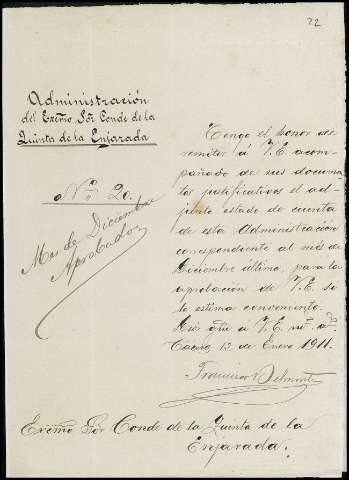 22
Administración
del Exc̃mo Sõr Conde de la
Quinta de la Enjarada
Nº 20.
Mes de Diciembre
Aprobado
Tengo el honor de
remitir á V.E. acom-
pañado de sus documen-
tos justificativos el ad-
junto estado de cuenta
de esta Administración
correspondiente al mes de
Diciembre último, para la
aprobación de V.E. si
lo estima conveniente.
Dios gũe á V.E. m̃s. a.s
Cáceres 12 de Enero 1911.
Francisco Belmonte
Exc̃mo Sõr Conde de la Quinta de la
Enjarada.